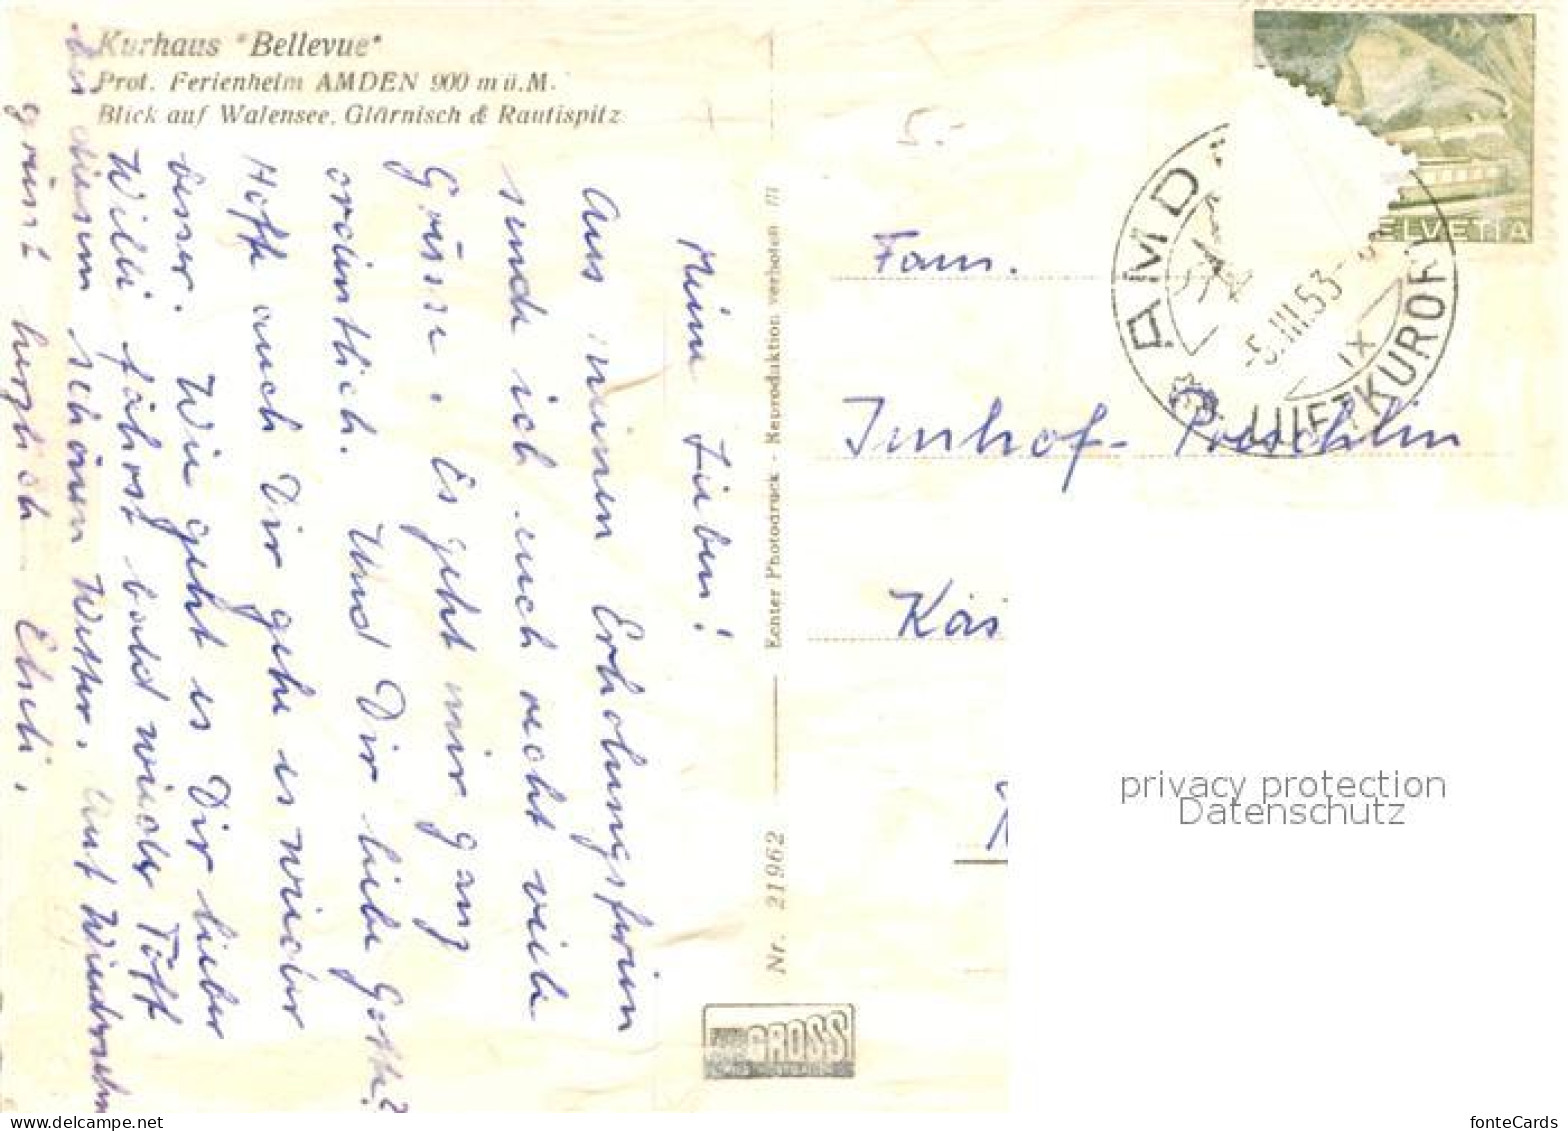 Kurhaus "Bellevue"
Prot. Ferienheim AMDEN 900 m ü. M.
Blick auf Walensee, Glärnisch & Rautispitz
Meine Lieben!
Aus meinen Erholungsferien
sende ich euch recht viele
Grüsse. Es geht mir ganz
ordentlich. Und Dir liebe Gotte?
Hoffe auch Dir gehe es wieder
besser. Wie geht es Dir lieber
Willi fährst bald wieder Töff
bei diesem schönen Wetter. Auf Wiedersehn
grüsst herzlich Elseli.
Echter Photodruck - Reproduktion verboten
Nr. 21962
FOTO GROSS
5.-
HELVETIA
AMD
-5.III.53-
IX
LUFTKURORT
Fam.
Imhof- Poeschlin
Käs
privacy protection
Datenschutz
www.delcampe.net
fonteCards